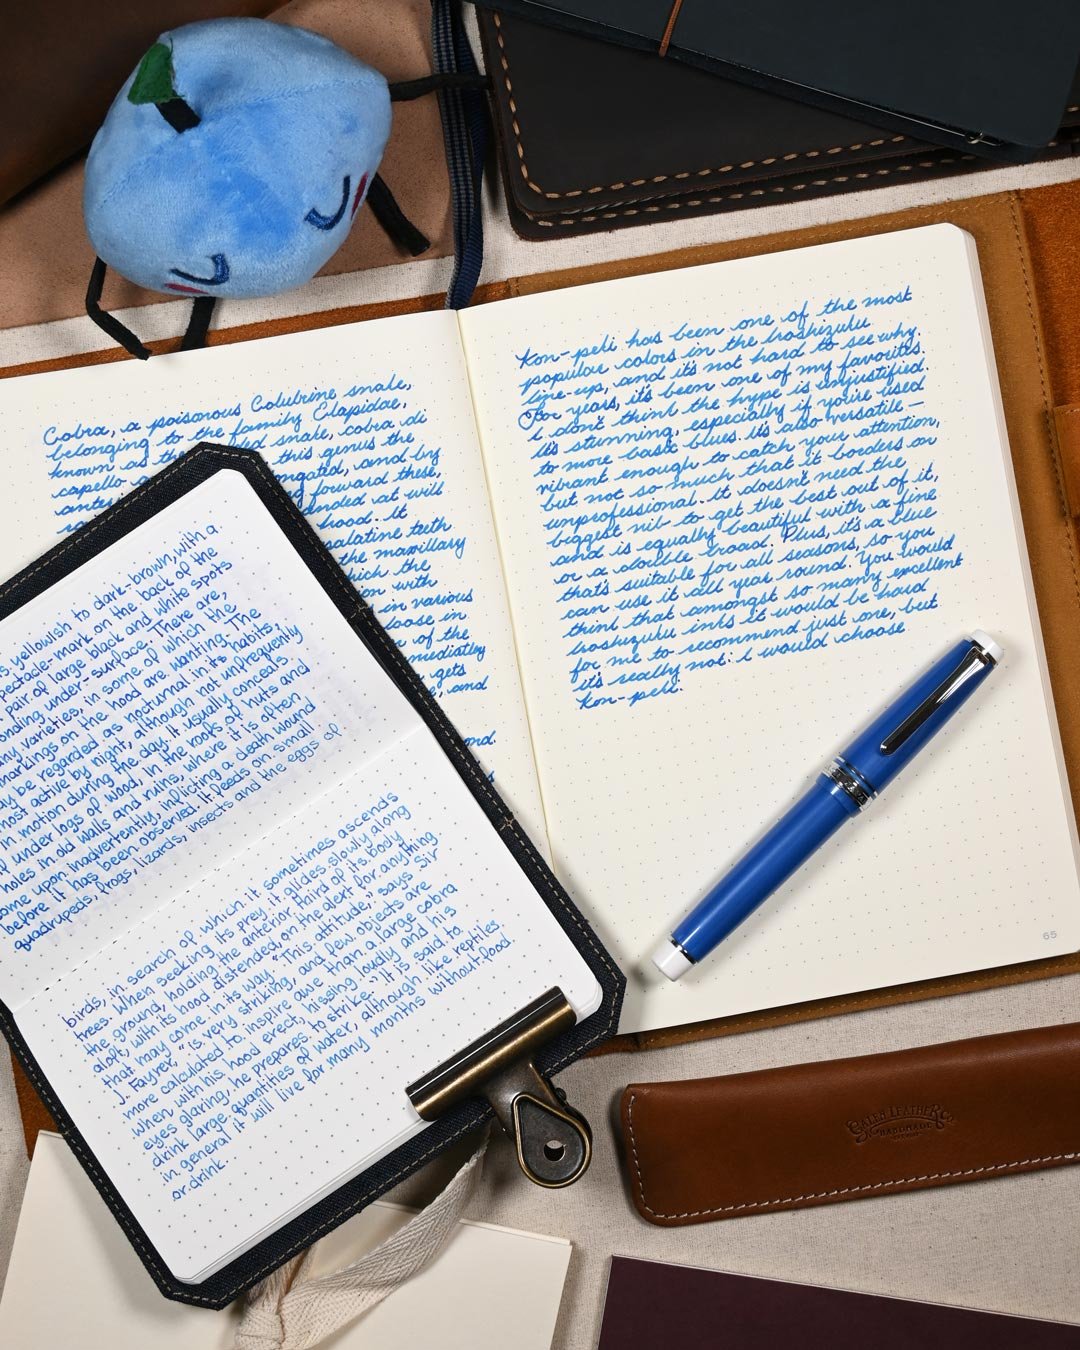 Cobra, a poisonous Colubrine snake,
belonging to the family Elapidae,
known as the ded snake, cobra di
capello ngated, and by
forward these,
ended at will
hood. It
palatine teeth
the maxillary
which the
with
in various
loose in
of the
immediatley
gets
and
Kon-peki has been one of the most
popular colors in the Iroshizuku
line-up, and it's not hard to see why.
For years, it's been one of my favorites.
I don't think the hype is unjustified.
It's stunning, especially if you're used
to more basic blues. It's also versatile—
vibrant enough to catch your attention,
but not so much that it borders on
unprofessional. It doesn't need the
biggest nib to get the best out of it,
and is equally beautiful with a fine
or a double broad. Plus, it's a blue
that's suitable for all seasons, so you
can use it all year round. You would
think that amongst so many excellent
Iroshizuku inks it would be hard
for me to recommend just one, but
it's really not: I would choose
Kon-peki.
65
s yellowish to dark-brown, with a
pectacle-mark on the back of the
pair of large black and white spots
onding under-surface. There are,
any varieties, in some of which the
markings on the hood are wanting. The
ay be regarded as nocturnal in its habits,
most active by night, although not unfrequently
in motion during the day. It usually conceals
under logs of wood, in the roofs of huts and
holes in old walls and ruins, where it is often
ome upon inadvertently, inflicting a death wound
before it has been observed. It feeds on small
quadrupeds, frogs, lizards, insects and the eggs of
birds, in search of which it sometimes ascends
trees. When seeking its prey it glides slowly along
the ground, holding the anterior third of its body
aloft, with its hood distended, on the alert for anything
that may come in its way. "This attitude," says Sir
J. Fayrer, "is very striking, and few objects are
more calculated to inspire awe than a large cobra
when with his hood erect, hissing loudly and his
eyes glaring, he prepares to strike." It is said to
drink large quantities of water, although like reptiles
in general it will live for many months without food.
or drink.
CALEB LEATHER Co
HANDMADE